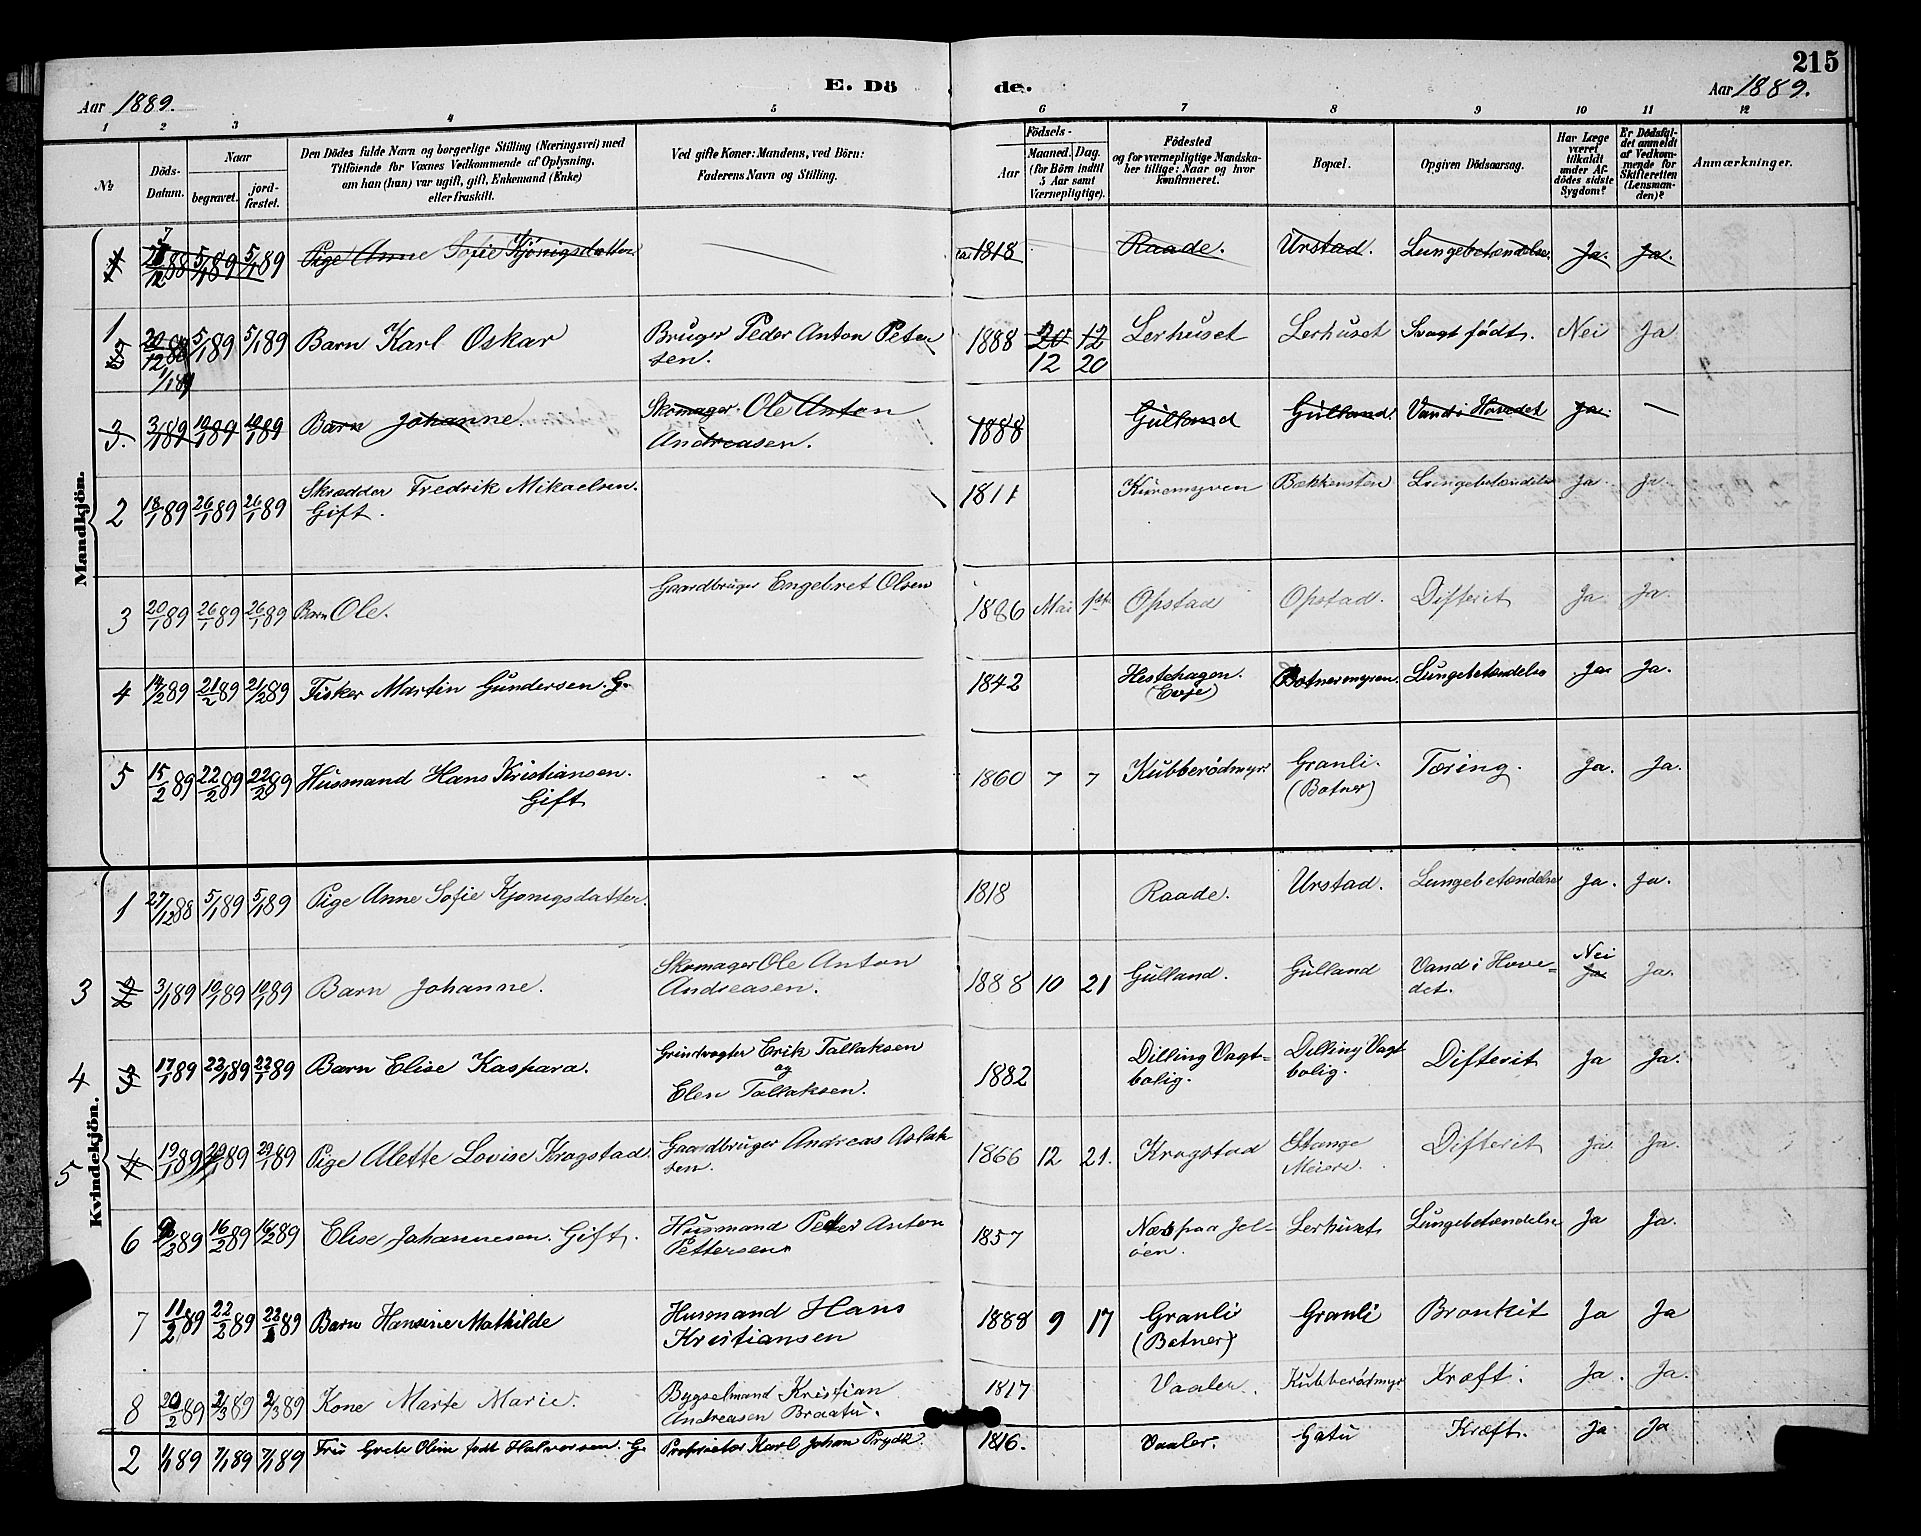 215
E. Dö de.
Aar 1889. Aar 1889.
1 2 3 4 5 6 7 8 9 10 11 12
№
Döds-Datum.
Naar
begravet.
jord-fæstet.
Den Dödes fulde Navn og borgerlige Stilling (Næringsvei) med
Tilföiende for Voxnes Vedkommende af Oplysning,
om han (hun) var ugift, gift, Enkemand (Enke)
eller fraskilt.
Ved gifte Koner: Mandens, ved Börn:
Faderens Navn og Stilling.
Födsels-
Aar
Maaned. Dag.
(for Börn indtil
5 Aar samt
Værnepligtige).
Födested
og for værnepligtige Mandska-
ber tillige: Naar og hvor
konfirmeret.
Bopæl.
Opgiven Dödsaarsag.
Har Læge
været
tilkaldt
under Af-
dödes sidste
Sygdom?
Er Dödsfal-
det anmeldt
af Vedkom-
mende for
Skifteretten
(Lensman-
den)?
Anmærkninger.
Mandkjön.
1 27/12 88 5/1 89 5/1 89 Pige Anne Sofie Kjönigsdatter 1818 Raade. Urstad. Lungebetændelse. Ja. Ja.
1 20/12 88 5/1 89 5/1 89 Barn Karl Oskar Bruger Peder Anton Peter 1888 20 12 Lerhuset Lerhuset Svagt født. Nei Ja
1/1 89 sen. 12 20
3. 3/1 89 19/1 89 19/1 89 Barn Johanne. Skomager Ole Anton 1888 Gulland Gulland. Vand i Hovedet Ja. —
Andreasen.
2 18/1 89 26/1 89 26/1 89 Skrædder Fredrik Mikaelsen. 1811 Kuremyren Bekkensten Lungebetændelse Ja. Ja.
Gift.
3 20/1 89 26/1 89 26/1 89 Barn Ole. Gaardbruger Engebret Olsen 1886 Mai 1ste Opstad Opstad. Difterit Ja. Ja.
4 14/2 89 21/2 89 21/2 89 Fisker Martin Gundersen. G. 1842 Hestehagen. Botnermyren. Lungebetændelse Ja. Ja.
(Evje)
5 15/2 89 22/2 89 22/2 89 Husmand Hans Kristiansen. 1860 7 7 Kubberødmyr Granli. Tæring. Ja. Ja.
Gift (Botner)
Kvindekjön.
1 27/12 88 5/1 89 5/1 89 Pige Anne Sofie Kjönigsdatter. 1818 Raade. Urstad. Lungebetændelse Ja. Ja.
3 3/1 89 19/1 89 19/1 89 Barn Johanne. Skomager Ole Anton 1888 10 21 Gulland. Gulland Vand i Hove- Nei Ja.
Andreasen. det. Ja
4 3 17/1 89 22/1 89 22/1 89 Barn Elise Kaspara. Grindvogter Erik Tallaksen 1882 Dilling Vagt- Dilling Vagt Difterit Ja Ja.
og bolig. bolig.
Elen Tallaksen.
5 4 19/1 89 29/1 89 29/1 89 Pige Alette Lovise Krogstad. Gaardbruger Andreas Aslak 1866 12 21. Krogstad Stange Difterit Ja. Ja.
sen. Meiere.
6 9/2 89 16/2 89 16/2 89 Elise Johannesen. Gift. Husmand Peder Anton 1857 Næs paa Jel- Lerhuset Lungebetændelse Ja Ja.
Pettersen öen.
7 11/2 89 22/2 89 22/2 89 Barn Hansine Mathilde Husmand Hans 1888 9 17 Granli Granli Bronkit Ja Ja
Kristiansen (Botner)
8 20/2 89 2/3 89 2/3 89 Kone Marte Marie. Bygselmand Kristian 1817 Vaaler. Kubberødmyr Kræft. Ja. Ja.
Andreasen Braatu.
2 1/1 89 7/1 89 7/1 89 Fru Grete Olin født Halvorsen. G. Proprietær Karl Johan Prydz. 1816. Vaaler. Gatu Kræft. Ja Ja